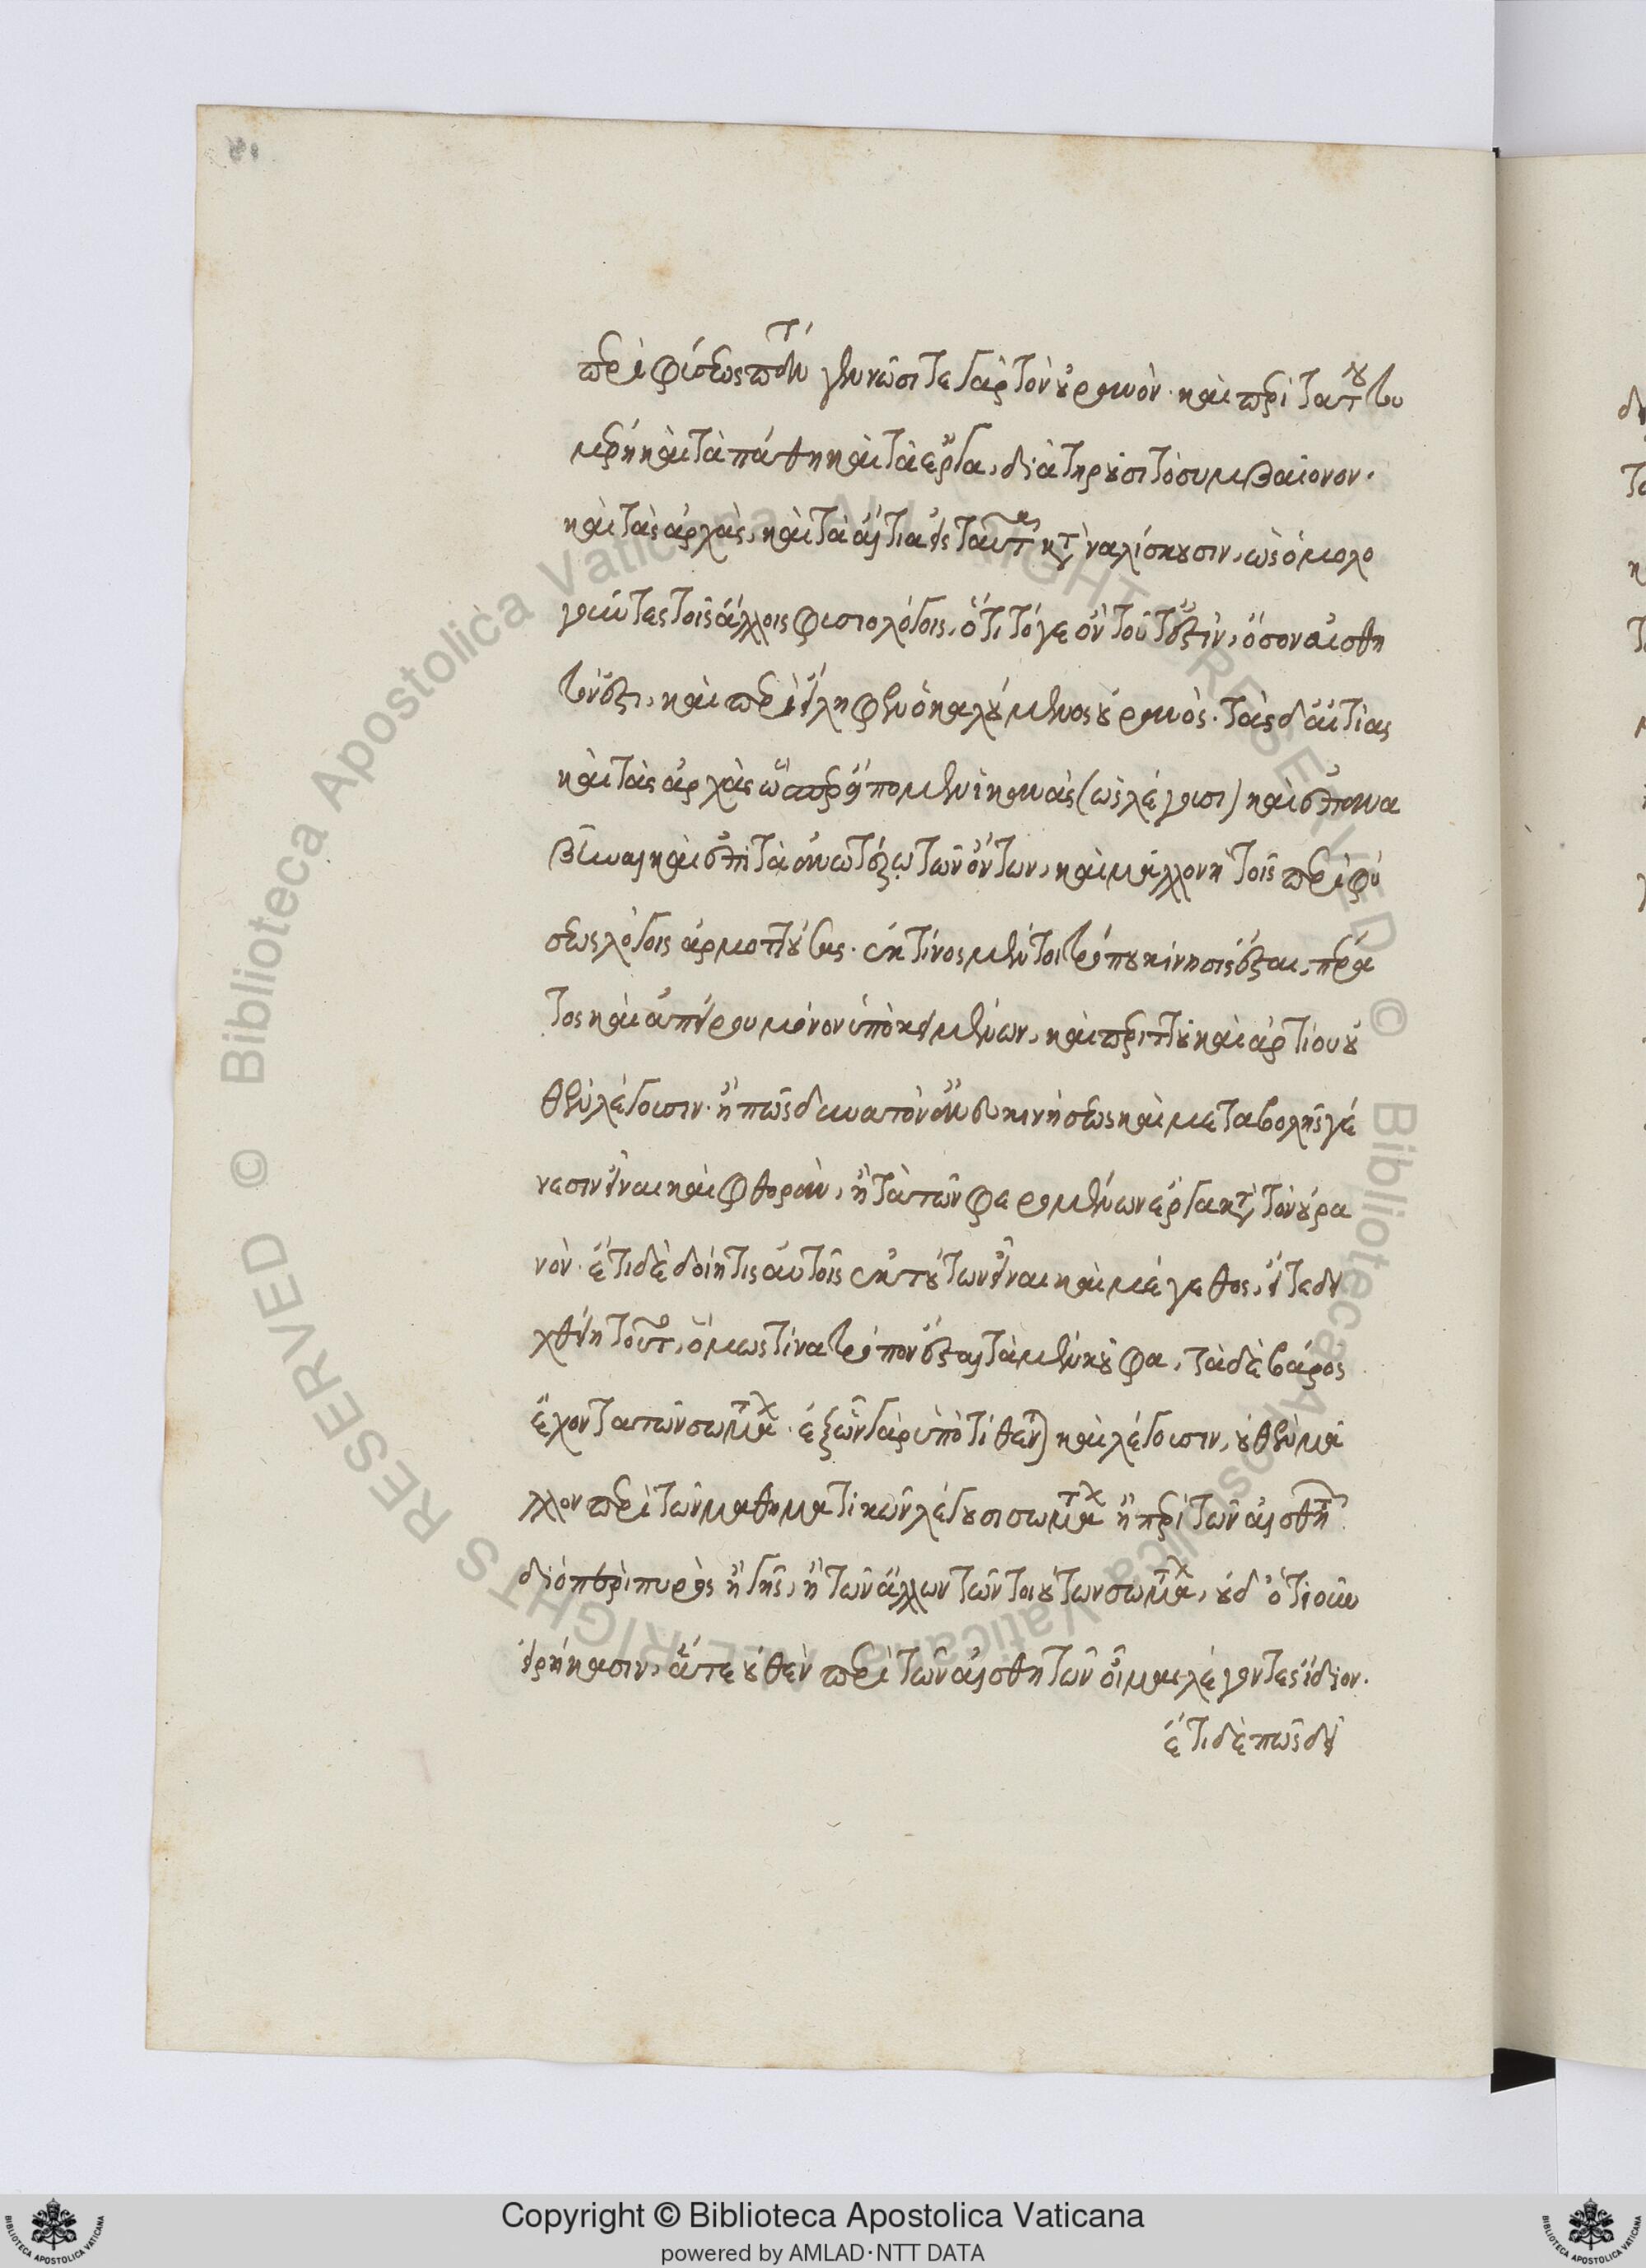 περὶ φύσεως πάντα γεννῶσί τε γὰρ τὸν οὐρανὸν· καὶ περὶ τὰ τούτου
μέρη καὶ τὰ πάθη καὶ τὰ ἔργα, διατηροῦσι τὸ συμβαῖνον·
καὶ τὰς ἀρχὰς, καὶ τὰ αἴτια εἰς ταῦτα καταναλίσκουσιν, ὡς ὁμολο
γοῦντες τοῖς ἄλλοις φυσιολόγοις, ὅτι τό γε ὂν τοῦτό ἐστιν, ὅσον αἰσθη
τόν ἐστι, καὶ περιείληφεν ὁ καλούμενος οὐρανός. τὰς δ' αἰτίας
καὶ τὰς ἀρχὰς ὥσπερ εἴπομεν ἱκανὰς (ὡς λέγουσι) καὶ ἐπανα
βῆναι καὶ ἐπὶ τὰ ἀνωτέρω τῶν ὄντων, καὶ μᾶλλον ἢ τοῖς περὶ φύ
σεως λόγοις ἁρμοττούσας. ἐκ τίνος μέντοι τρόπου κίνησις ἔσται, πέρα
τος καὶ ἀπείρου μόνον ὑποκειμένων, καὶ περιττοῦ καὶ ἀρτίου οὐ
θὲν λέγουσιν· ἢ πῶς δυνατὸν ἄνευ κινήσεως καὶ μεταβολῆς γέ
νεσιν εἶναι καὶ φθοράν, ἢ τὰ τῶν φερομένων ἔργα κατὰ τὸν οὐρα
νόν· ἔτι δὲ δοίη τις αὐτοῖς ἐκ τούτων εἶναι καὶ μέγεθος, εἴτε δει
χθείη τοῦτο, ὅμως τίνα τρόπον ἔσται τὰ μὲν κοῦφα, τὰ δὲ βάρος
ἔχοντα τῶν σωμάτων· ἐξ ὧν γὰρ ὑποτίθενται καὶ λέγουσιν, οὐθὲν μᾶ
λλον περὶ τῶν μαθηματικῶν λέγουσι σωμάτων ἢ περὶ τῶν αἰσθητῶν
διὸ περὶ πυρὸς ἢ γῆς, ἢ τῶν ἄλλων τῶν τοιούτων σωμάτων, οὐδ' ὁτιοῦν
εἰρήκασιν, ἅτε οὐθὲν περὶ τῶν αἰσθητῶν οἶμαι λέγοντες ἴδιον.
ἔτι δὲ πῶς δεῖ
Copyright © Biblioteca Apostolica Vaticana
powered by AMLAD·NTT DATA